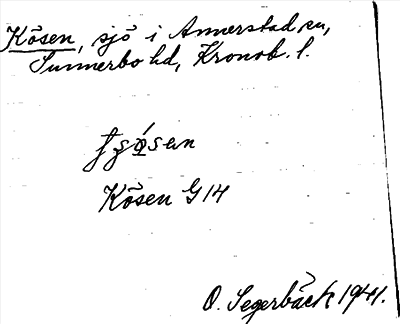 Kösen, sjö i Annerstad sn,
Sunnerbo hd, Kronob. l.
Kösen G 14
O. Segerbäck 1941.